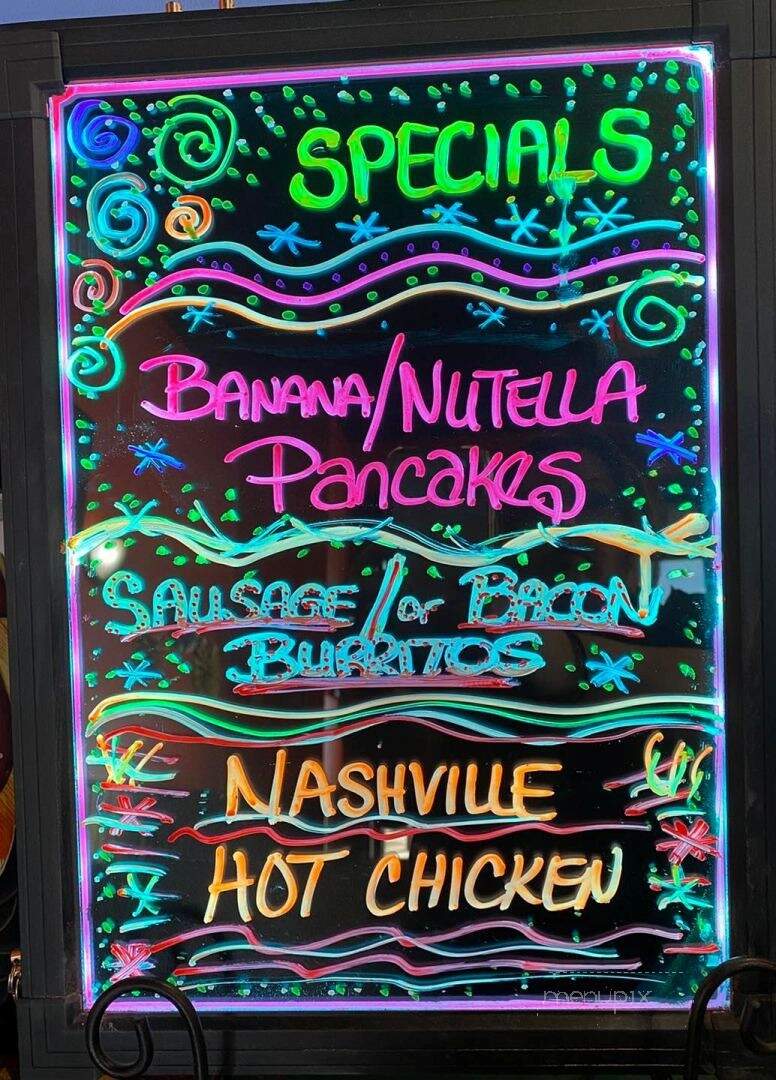 SPECIALS
BANANA/NUTELLA
Pancakes
SAUSAGE/or BACON
BURRITOS
NASHVILLE
HOT CHICKEN
menupix